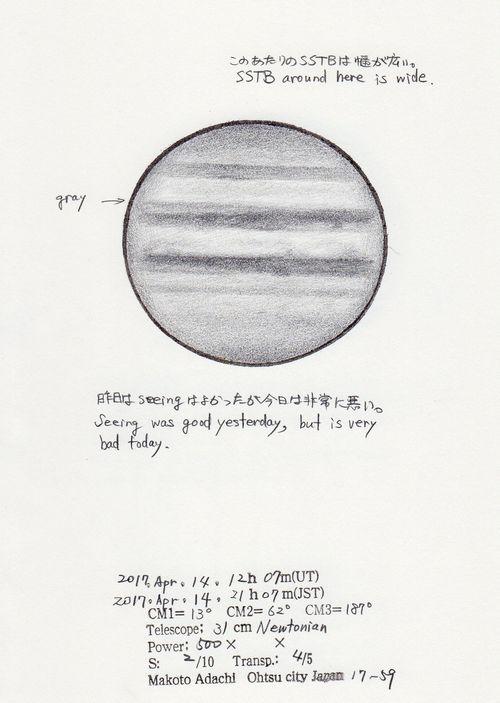 このあたりのSSTBは幅が広い。
SSTB around here is wide.
gray
昨日はseeingはよかったが今日は非常に悪い。
Seeing was good yesterday, but is very
bad today.
2017. Apr. 14. 12h 07m(UT)
2017. Apr. 14. 21h07m(JST)
CM1= 13° CM2= 62° CM3= 187°
Telescope; 31 cm Newtonian
Power; 500× ×
S: 2/10 Transp.; 4/5
Makoto Adachi Ohtsu city Japan 17~59